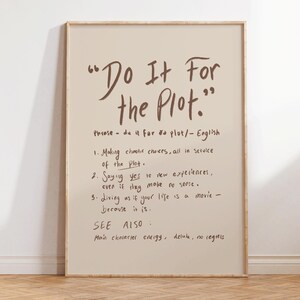 "Do It For
the Plot."
Phrase - do it for da plot/- English
1. Making chaotic choices, all in service
of the plot.
2. Saying yes to new experiences,
even if they make no sense.
3. Living as if your life is a movie -
because it is.
SEE ALSO:
Main character energy, delulu, no regrets